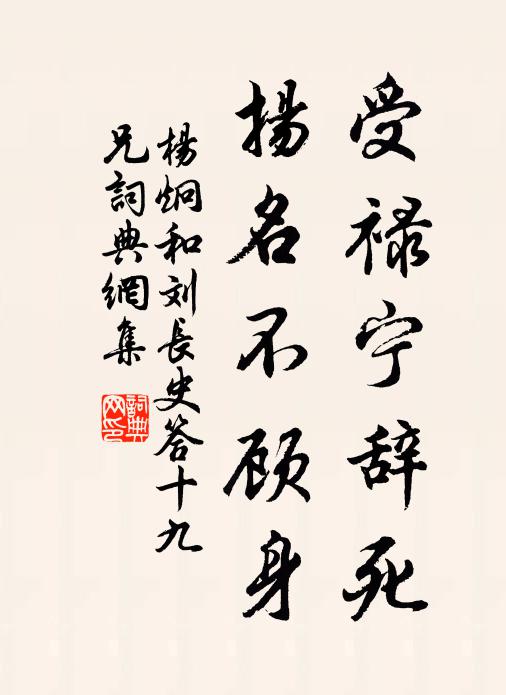 受禄宁辞死
揚名不顾身
楊炯和刘長史答十九
兄詞典網集
詞典
网印